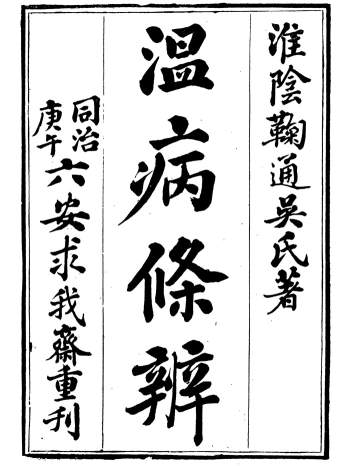 淮陰鞠通吳氏著
溫病條辨
同治庚午六安求我齋重刊